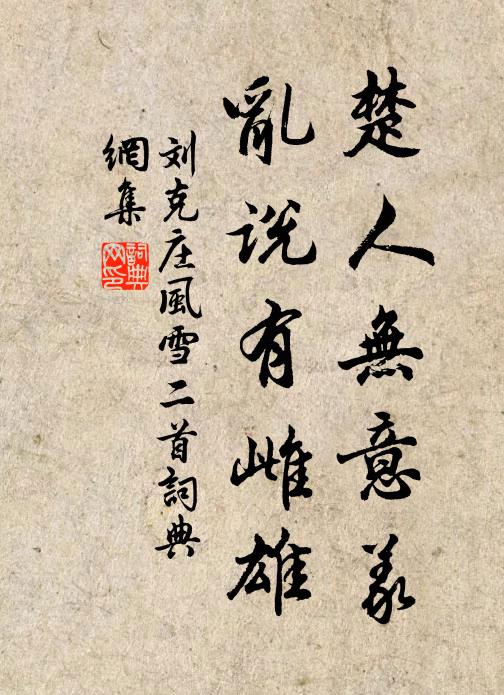 楚人無意義
亂説有雌雄
刘克庄風雪二首詞典
網集
詞典
网印